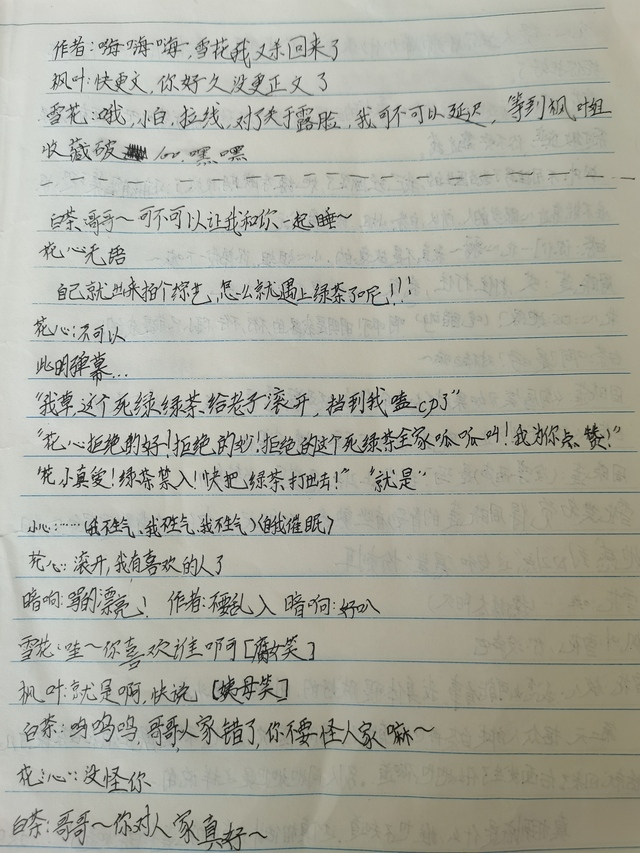 作者:嗨嗨嗨,雪花我又杀回来了
枫叶:快更文,你好久没更正文了
雪花:哦,小白,拉线,对了关于露脸,我可不可以延迟,等到枫叶姐
收藏破100,嘿嘿
白茶:哥哥~可不可以让我和你一起睡~
花心无语
自己就出来拍个综艺,怎么就遇上绿茶了呢!!!
花心:不可以
此时弹幕...
"我草,这个死绿绿茶,给老子滚开,挡到我嗑cp了"
"花心拒绝的好!拒绝的妙!拒绝的这个死绿茶全家呱呱叫!我为你点赞!"
"花小真爱!绿茶禁入!快把绿茶打出去!" "就是"
小心:……(我不生气、我不生气、我不生气)(自我催眠)
花心:滚开,我有喜欢的人了
暗响:骂的漂亮! 作者:不要乱入 暗响:好叭
雪花:哇~你喜欢谁啊[腐女笑]
枫叶:就是啊,快说[姨母笑]
白茶:呜呜呜,哥哥人家错了,你不要怪人家嘛~
花心:没怪你
白茶:哥哥~你对人家真好~